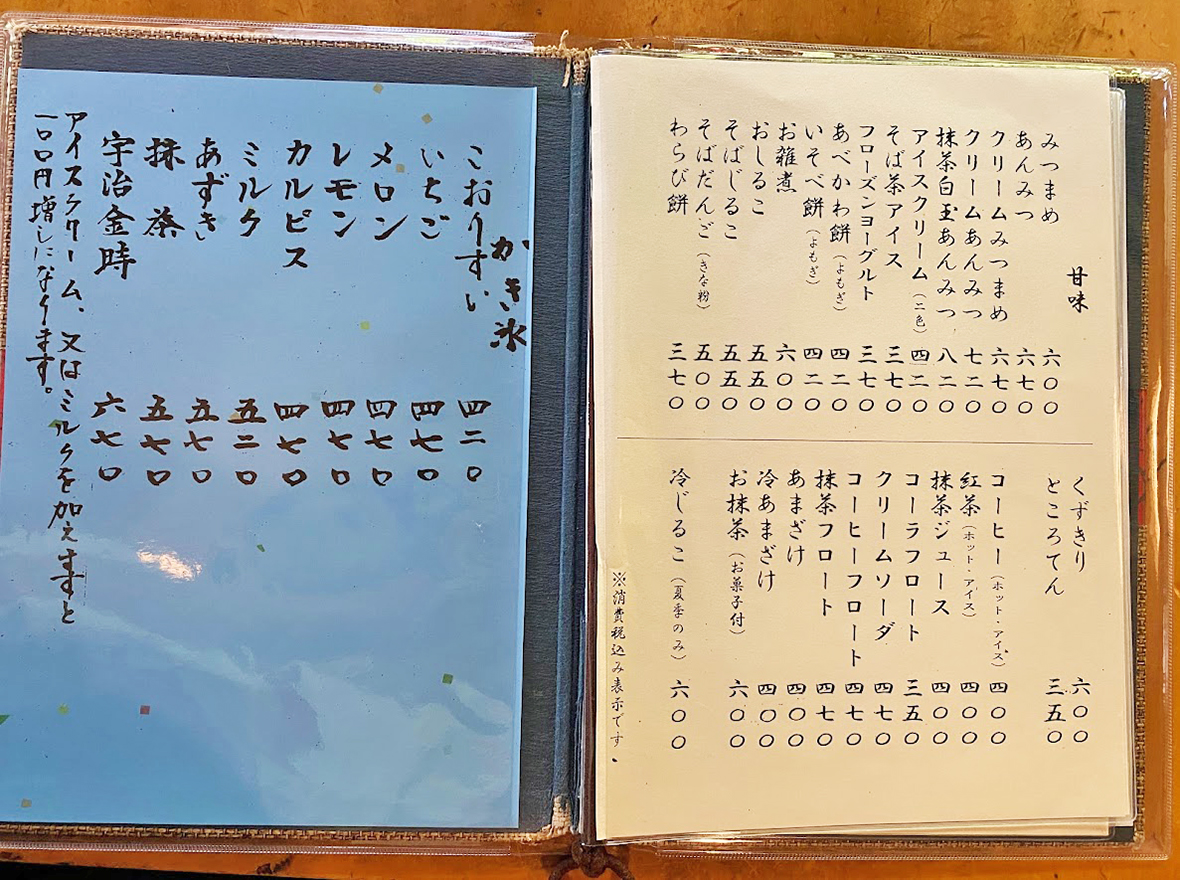 甘味
みつまめ 六〇〇
あんみつ 六七〇
クリームみつまめ 六七〇
クリームあんみつ 七二〇
抹茶白玉あんみつ 八二〇
アイスクリーム(二色) 四二〇
そば茶アイス 三七〇
フローズンヨーグルト 三七〇
あべかわ餅(よもぎ) 四二〇
いそべ餅(よもぎ) 四二〇
お雑煮 六〇〇
おしるこ 五五〇
そばじるこ 五五〇
そばだんご(きな粉) 五〇〇
わらび餅 三七〇
くずきり 六〇〇
ところてん 三五〇
コーヒー(ホット・アイス) 四〇〇
紅茶(ホット・アイス) 四〇〇
抹茶ジュース 四〇〇
コーラフロート 三五〇
クリームソーダ 四七〇
コーヒーフロート 四七〇
抹茶フロート 四七〇
あまざけ 四〇〇
冷あまざけ 四〇〇
お抹茶(お菓子付) 六〇〇
冷じるこ(夏季のみ) 六〇〇
※消費税込み表示です。
かき氷
こおりすい 四二〇
いちご 四七〇
メロン 四七〇
レモン 四七〇
カルピス 四七〇
ミルク 五二〇
あずき 五七〇
抹茶 五七〇
宇治金時 六七〇
アイスクリーム、又はミルクを加えますと
一〇〇円増しになります。